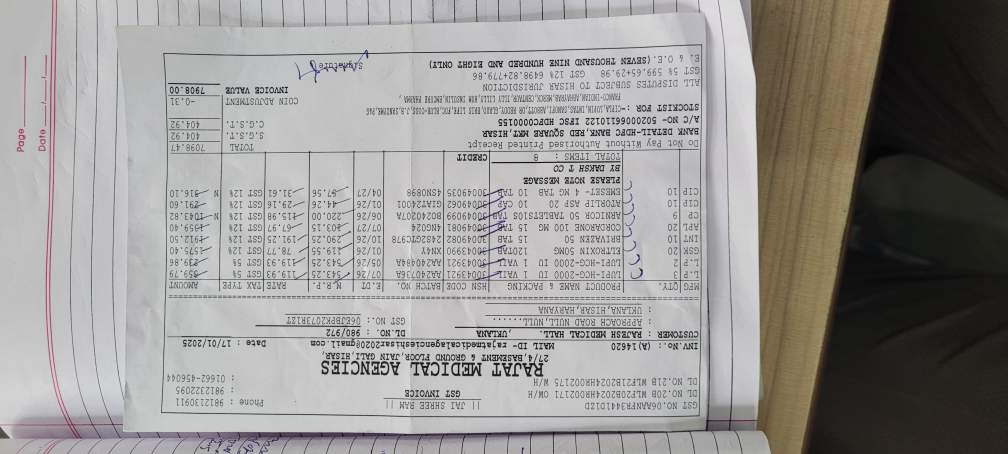 Page
Date
GST NO.06AANFR3441D1ZD
|| JAI SHREE RAM ||
Phone : 9812130911
DL NO.OW/H WLF20B2024HR002171
GST INVOICE
: 9812322095
DL NO.21B WLF21B2024HR002175 W/H
: 01662-456044
RAJAT MEDICAL AGENCIES
27/4,BASEMENT & GROUND FLOOR,JAIN GALI,HISAR,
INV.No.: (A)14620 MAIL ID- rajatmedicalagencieshisar2020@gmail.com Date : 17/01/2025
CUSTOMER : RAJESH MEDICAL HALL. ,UKLANA DL.NO. : 980/972
: APPROACH ROAD NULL,NULL...... GST NO.: 06EJBPK2073R1ZT
: UKLANA,HISAR,HARYANA
MFG QTY. PRODUCT NAME & PACKING HSN CODE BATCH NO. E.DT M.R.P. RATE TAX TYPE AMOUNT
L.P 3 LUPI-HCG-2000 IU 1 VAIL 30043921 AA24073A 07/26 543.25 119.93 GST 5% 359.79
L.P 2 LUPI-HCG-2000 IU 1 VAIL 30043921 AA24048A 05/26 543.25 119.93 GST 5% 239.86
GSK 20 ELTROXIN 50MG 120TAB 30043990 XN4Y 01/26 119.55 78.77 GST 12% 1575.40
INT 10 BRIVAZEN 50 15 TAB 30049082 10/26 290.25 191.25 GST 12% 1912.50
APL 20 CORBARONE 100 MG 15 TAB 30049081 4NG024 07/27 103.15 67.97 GST 12% 1359.40
CP 9 ARNICOR 50 TABLETS10S TAB 30049099 06/26 220.00 115.98 GST 12% N 1043.82
CIP 10 ATORLIP ASP 20 10 CAP 30049062 GIA724001 01/26 44.26 29.16 GST 12% 291.60
CIP 10 EMBEST- 4 MG TAB 10 TAB 30049035 4SN0898 04/27 57.56 31.61 GST 12% N 316.10
PLEASE NOTE MESSAGE
BY DAKSH T CO
TOTAL ITEMS : 8 CREDIT
Do Not Pay Without Authorised Printed Receipt
TOTAL 7098.47
BANK DETAIL-HDFC BANK,RED SQUARE MRT,HISAR
S.G.S.T. 404.92
A/C NO- 50200061106122 IFSC HDFC0000155
C.G.S.T. 404.92
STOCKIST FOR :-
COIN ADJUSTMENT -0.31
ALL DISPUTES SUBJECT TO HISAR JURISDICTION
INVOICE VALUE 7908.00
GST 5% 599.65+29.98 GST 12% 6498.82+779.86
E. & O.E. (SEVEN THOUSAND NINE HUNDRED AND EIGHT ONLY)
Signature